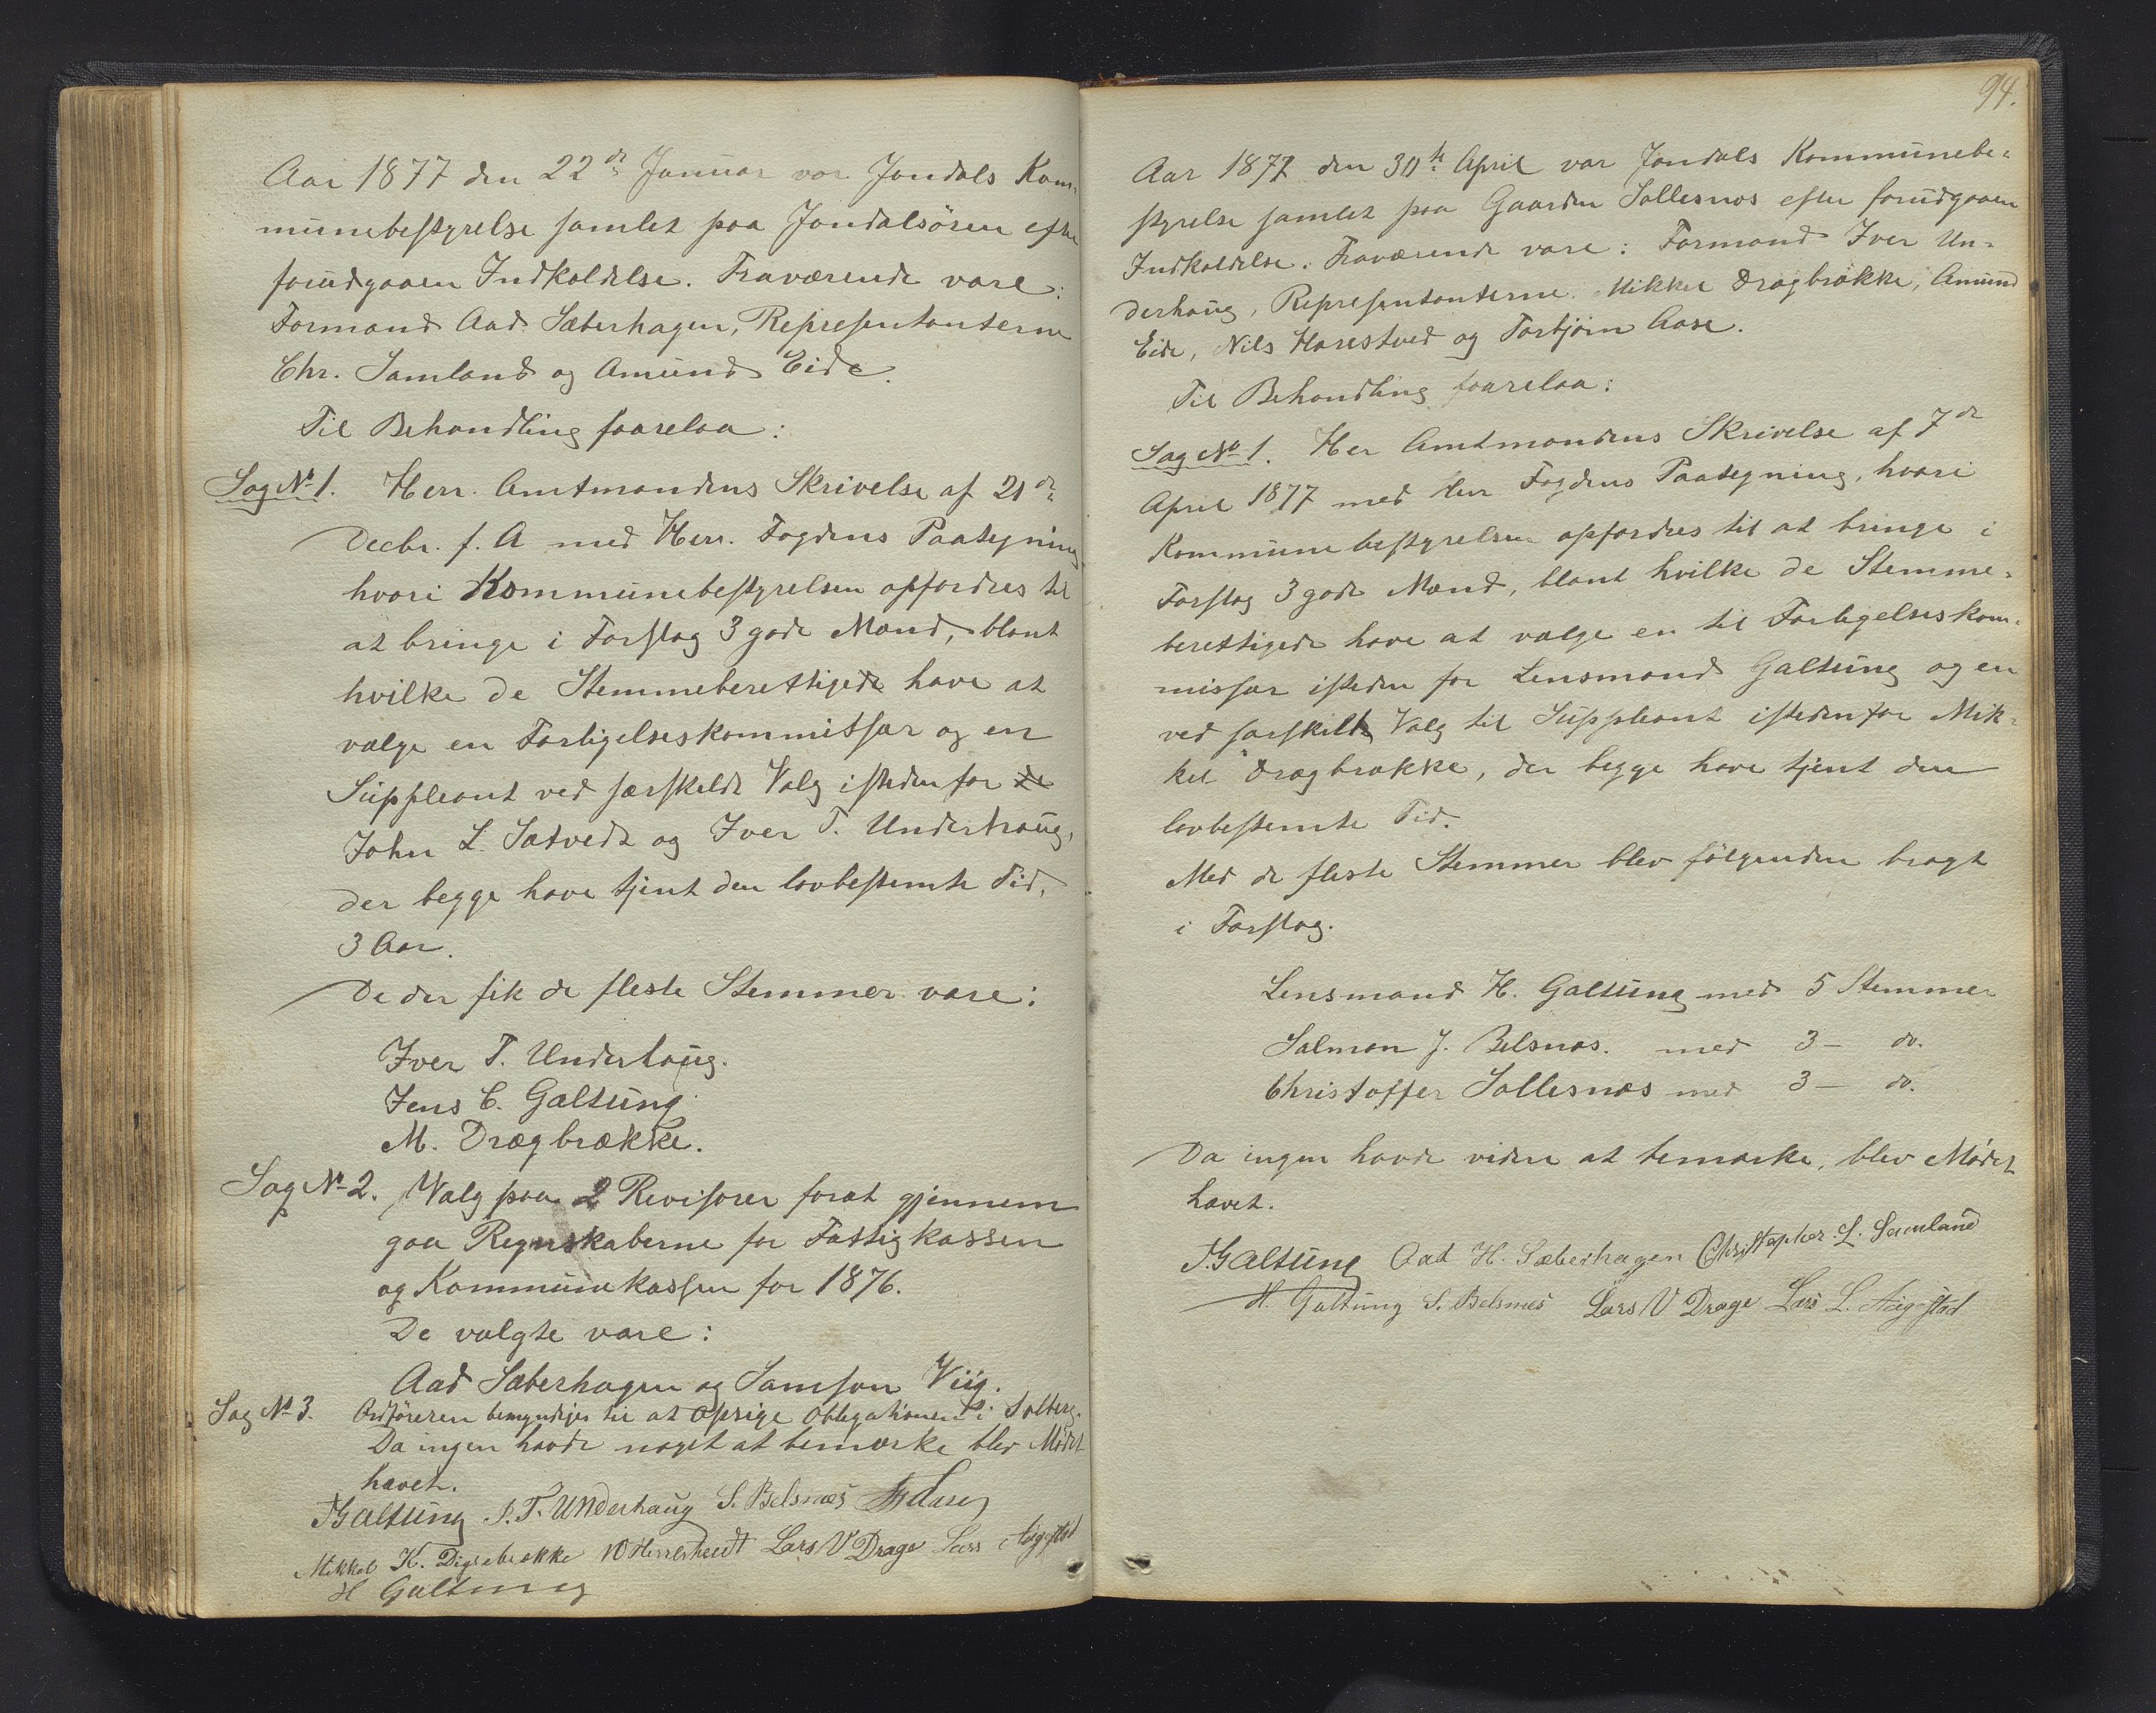 Aar 1877 den 22de Januar var Jondals Kom-
munebestyrelse samlet paa Jondalsören efter
forudgaaen Indkaldelse. Fraværende vare:
Formand Aad Sæberhagen, Repræsentanterne
Chr. Samland og Amund Eide.
Til Behandling foarelaa:
Sag No 1. Herr. Amtmandens Skrivelse af 21de
Decbr. f. A med Herr. Fogdens Paategning
hvori Kommunebestyrelsen opfordres til
at bringe i Forslag 3 gode Mænd, blant
hvilke de Stemmeberettigede have at
vælge en Forligelseskommissær og en
Suppleant ved særskildt Valg istedenfor de
John L. Sætvedt og Iver T. Underhaug,
der begge have tjent den lovbestemte Tid,
3 Aar.
De der fik de fleste Stemmer vare:
Iver T. Underhaug.
Jens C. Galtung
M. Drægbrække.
Sag No 2. Valg paa 2 Revisorer forat gjennem
gaa Regnskaberne for Fattigkassen
og Kommunekassen for 1876.
De valgte vare:
Aad Sæberhagen og Samson Viig.
Sag No 3. Ordföreren bemyndiges til at opsige Obligationen i Solberg.
Da ingen havde noget at bemærke blev Mödet
hævet.
Galtung I. T. Underhaug S. Belsnæs
Mikkel K. Digrebrække Lars V Drage Lars Aigestad
H Galtung
94.
Aar 1877 den 30te April var Jondals Kommunebe-
styrelse samlet paa Gaarden Sollesnæs efter forudgaaen
Indkaldelse. Fraværende vare: Formand Iver Un-
derhaug, Repræsentanterne Mikkel Drægbrække, Amund
Eide, Nils Herestved og Torbjörn Aase.
Til Behandling foarelaa:
Sag No 1. Her Amtmandens Skrivelse af 7de
April 1877 med Her Fogdens Paategning, hvori
Kommunebestyrelsen opfordres til at bringe i
Forslag 3 gode Mænd, blant hvilke de Stemme-
berettigede have at vælge en til Forligelseskom-
missær isteden for Lensmand Galtung og en
ved særskilt Valg til Suppleant istedenfor Mik-
kel Drægbrække, der begge have tjent den
lovbestemte Tid.
Med de fleste Stemmer blev fölgenden bragt
i Forslag.
Lensmand H. Galtung med 5 Stemmer
Salmon J. Belsnæs. med 3 — do.
Christoffer Sollesnæs med 3 — do.
Da ingen havde videre at bemærke, blev Mödet
hævet.
Galtung Aad H. Sæberhagen Christopher L. Samland
H. Galtung S. Belsnæs Lars V Drage Lars L. Aigestad